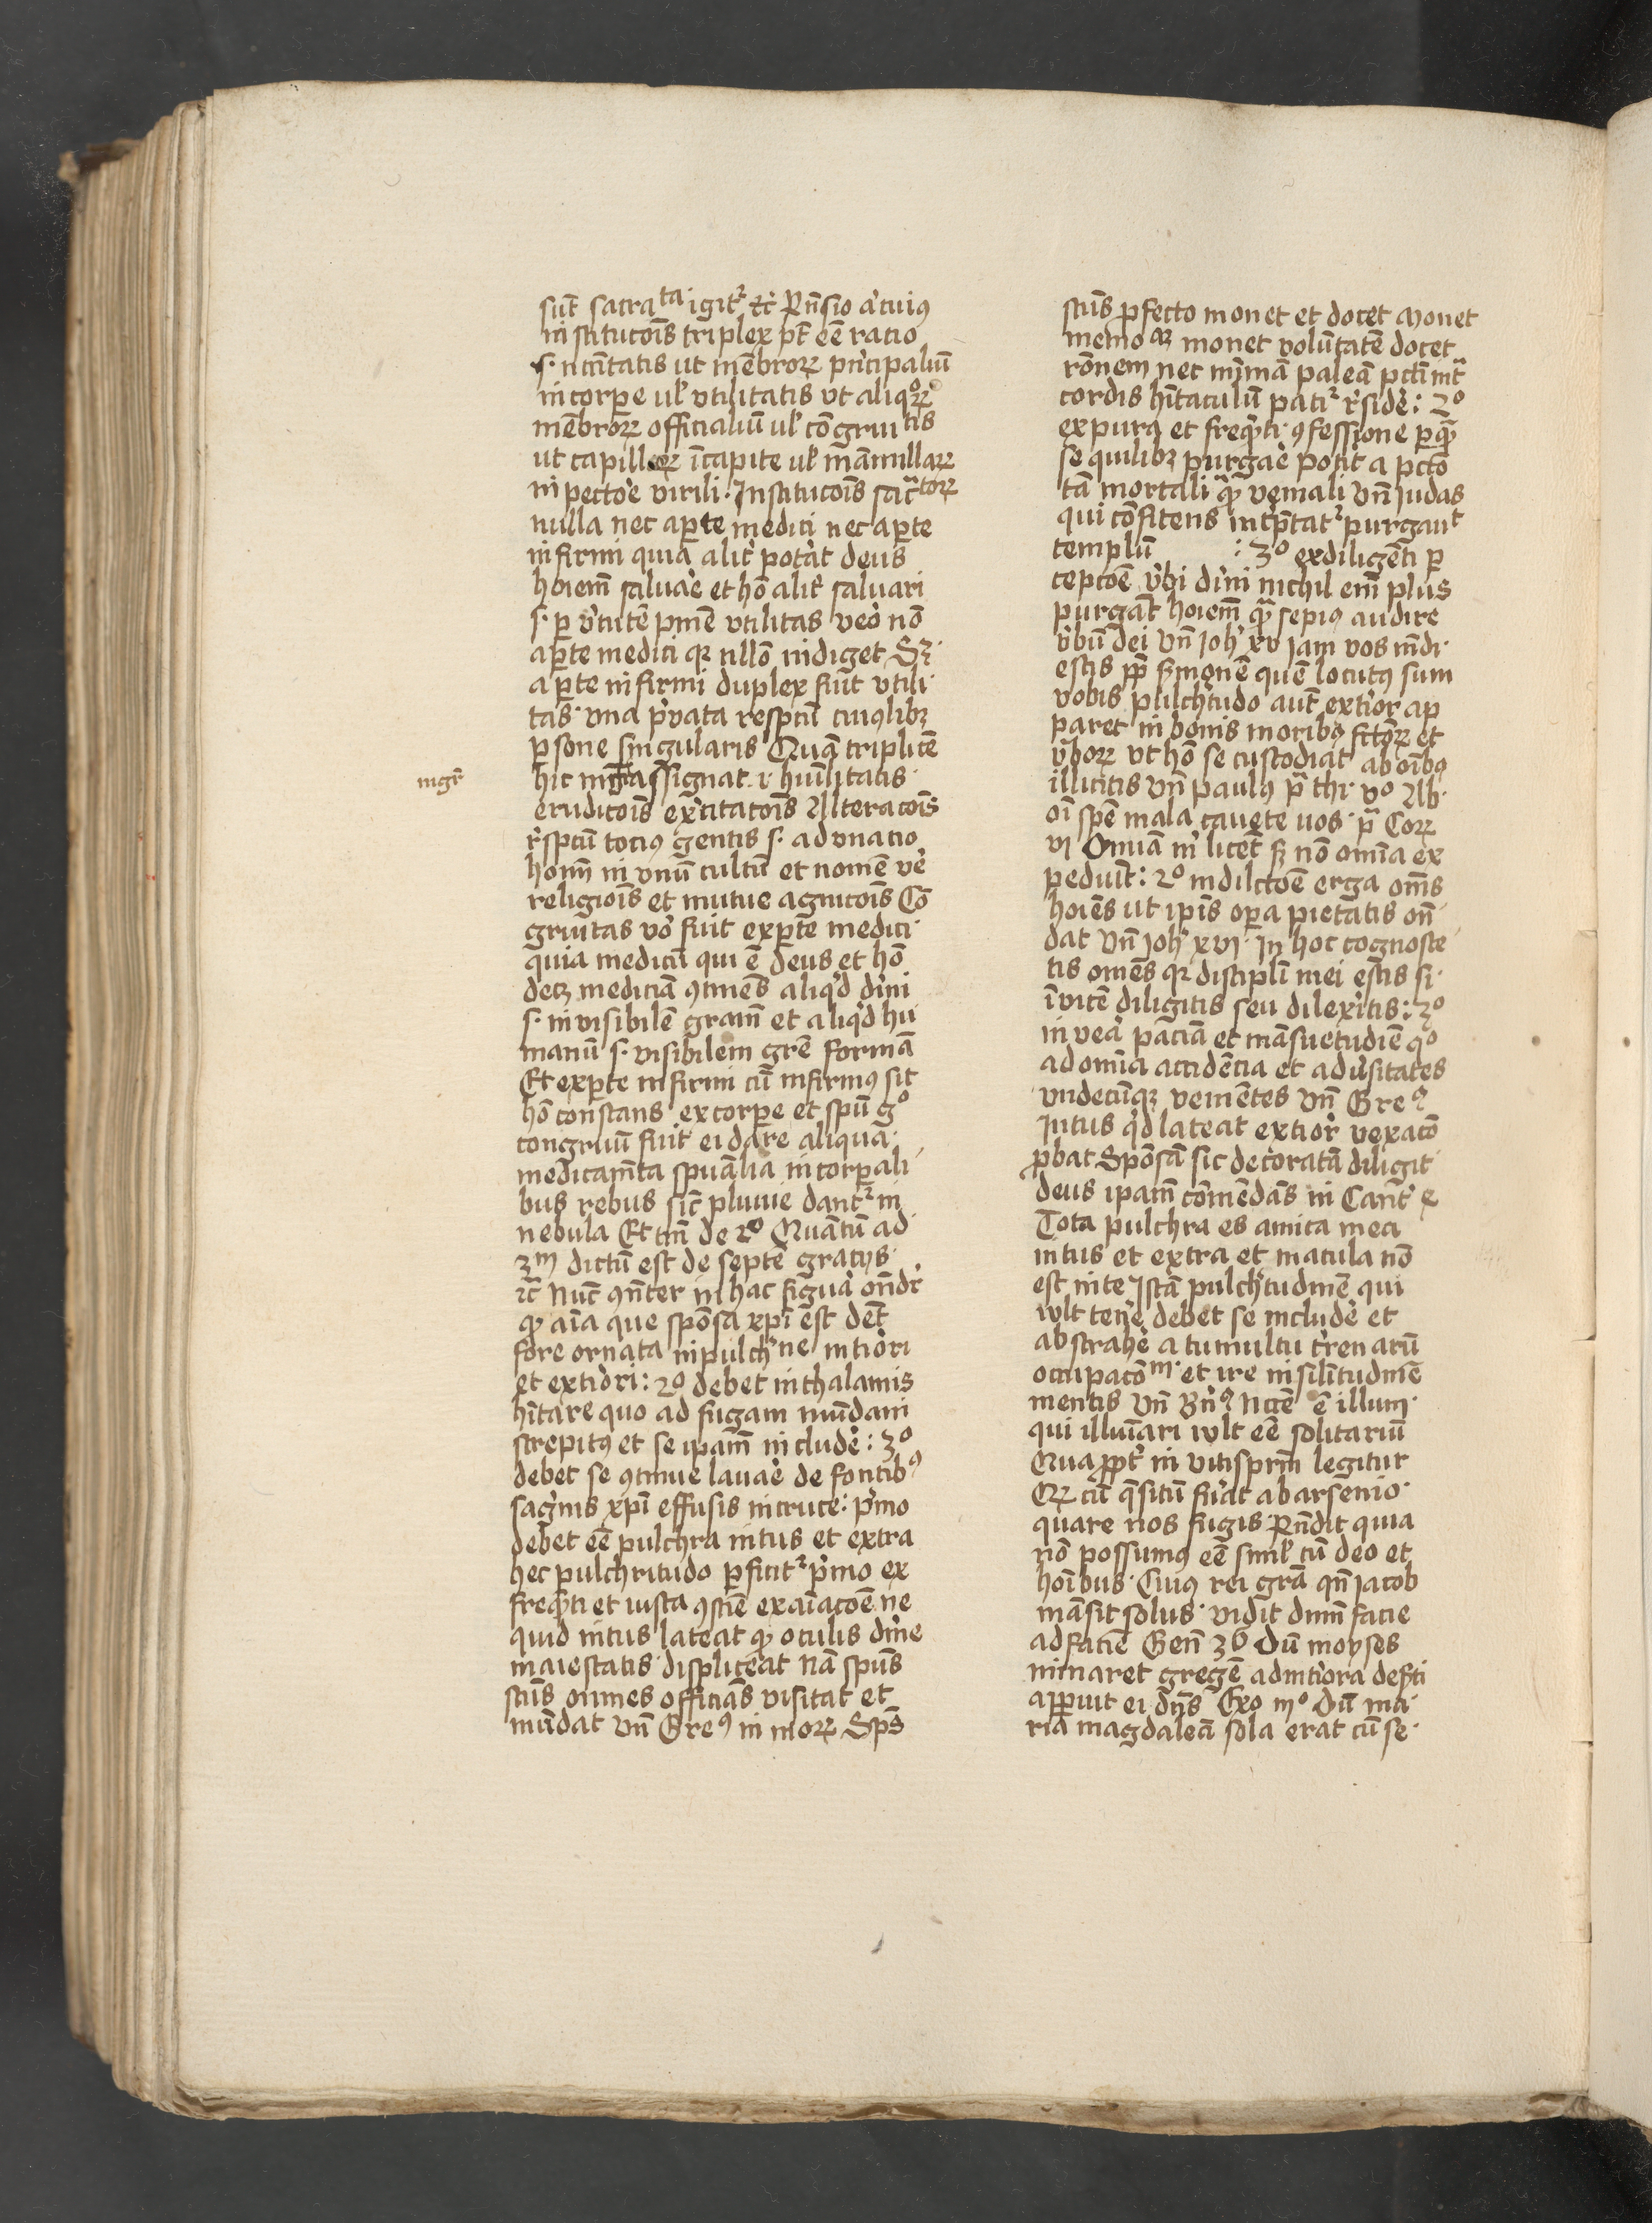 sūt sacrata igit̉ ꝛc̉ Rn̄sio a͛cuiꝯ
institucōis triplex pt̄ eē ratio
s· nc̄itatis ut mēbroꝝ pn͛cipaliū
in corꝑe ul̉ vtilitatis vt aliqͦꝝ
mēbroꝝ officialiū ul̉ cōgruitis
ut capilloꝝ ī capite ul̉ mamillaꝝ
in pecto͛e virili· Institucōis sac̄toꝝ
nulla nec aꝑte medici nec aꝑte
infirmi quia alit͛ pot͛at deus
hoiem̄ salua͛e et hō alit͛ saluari
s· ꝑ v͛tutē pnīe vtilitas ueo͛ nō
aꝑte medici qꝛ nllō indiget Sꝫ·
aꝑte infirmi duplex fiūt vtili
tas· vna p͛uata respctū cuiꝯlibꝫ
ꝑsone singularis Quā triplicē
mgr̄
hic mgr̄ assignat· r hūilitatis·
erudicōis exͬcitacōis Alteracōis·
r͛spctū tociꝯ gentis s· advnatio
hoīm in vnū cultū et nomē ve͛
religiōis et mutue agnicōis Cō
gruitas vo͛ fuit exꝑte medici·
quia medicū qui ē deus et hō
decꝫ medicīa ꝯtinēs aliqͥd diͥni
s· invisibilē gram̄ et aliqͥd hu
manū s· visibilem grē formā
Et exꝑte infirmi cū infirmꝯ sit
hō constans ex corꝑe et spū gͦ
congruū fuit ei dare aliqua·
medicam̄ta spūalia in corꝑali
bus rebus sic̄ pluuie dant̉ in
nebula Et tm̄ de 2ͦ Quātū ad
3m dictū est de septē gracijs
ꝛc̄ Nūc ꝯn̄ter in hac figura͛ on̄dr̉
qꝫ aīa que spōsa xp̄i est det̄
fore ornata in pulch͛ne inti͛ori
et exti͛ori: 2ͦ debet in thalamis
hītare quo ad fugam mūdani
strepitꝯ et se ipam̄ include͛: 3ͦ
debet se ꝯtinue laua͛e de fontibꝯ
sag͛nis xp̄i effusis in cruce: p͛mo
debet eē pulchra intus et extra
hec pulchritudo ꝑficit̉ p͛mo ex
freqn̄ti et iusta ꝯsciē exaīacōe ne
quid intus lateat qꝫ oculis diͥne
maiestatis displiceat Nā spūs
scūs omnes officiās visitat et
mūdat vn̄ Greꝯ in moꝝ Spūs
scūs ꝓfecto monet et docet Monet
memoaꝫ monet voluntatē docet
rōnem nec mīmā paleā pctī int̄
cordis hītaculū patit̉ r͛side͛: 2ͦ
ex pura et freqn̄ti ꝯfessione ꝑ qm̄
se quilibꝫ purga͛e pot͛it a pctō
tā mortali qm̄ veniali vn̄ Judas
qui cōfitens intp̄tat̉ purgauit
templū : 3ͦ ex diligēti ꝑ
cepcōe v͛bi diͥni nichil em̄ plus
purgat̄ hoiem̄ qm̄ sepiꝯ audire
v͛bū dei vn̄ Joh͛ xv Jam vos mūdi·
estis ꝓp̄ s͛monē quē locutꝯ sum
vobis pulch͛tudo aut̄ exti͛or ap
paret in bonis moribꝯ fct̄oꝝ et
v͛boꝝ vt hō se custodiat ab oībꝯ
illicitis vn̄ paulꝯ pͣ thi· vͦ Ab·
oī spē mala cauete uos· pͣ Coꝝ
vi Omīa m͛ licēt sꝫ nō omīa ex
pediūt: 2ͦ in dilc̄toe erga oms̄
hoīes ut ip̄is oꝑa pietatis on̄
dat vn̄ Joh͛ xvi· In hoc cognosce
tis omēs qꝛ discipli̅ mei estis si·
īvicē diligitis seu dilexitis: 3ͦ
in vea͛ paciā et māsuetudīe qͦ
ad omīa accidēcia et adu͛sitates
vndecūqꝫ venientes vn̄ Greꝯ
Intus qͥd lateat exti͛or vexacō
ꝓbat Spōsā sic decoratā diligit
deus ipam̄ cōmēdās in Cant̄
Tota pulchra es amica mea
intus et extra et macula nō
est in te Istā pulch͛tudinē qui
wlt tene͛ debet se include͛ et
abstrahe͛ a tumultu t͛renarū
occupacōm· et ire in silitudinē
mentis vn̄ Bn͛ꝯ Nccē ē illum·
qui illuīari wlt eē solitariū
Qua ꝓpt͛ in vitis pr̄m legitur
Qꝝ cū q̄situ fu͛at ab arsenio·
quare nos fugis Rn̄dit quia
nō possumꝯ eē siml̉ cū deo et
hoībus· Cuiꝯ rei gr̄a qn̄ Jacob
māsit solus· vidit dnm̄ facie
ad faciē Gen̄ 36 Dū moyses
minaret gregē ad inti͛ora des͛ti
apparuit ei dn̄s Exo iijͦ Dū ma
ria magdalēa sola erat cū se·